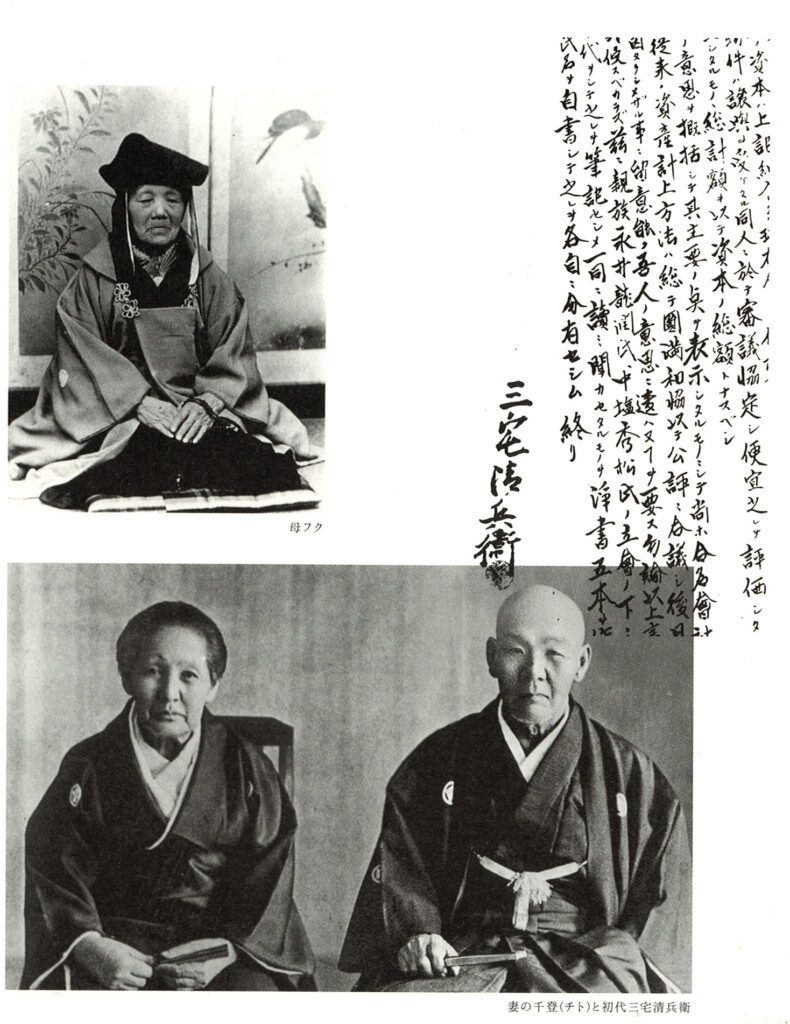 資本ハ上記
物件ハ讓與ヲ受ケタル同人ニ於テ審議協定シ便宜之レヲ評価シタ
ルモノヽ総計額ヲ以テ資本ノ総額トナスベシ
意思ヲ概括シテ其主要ノ点ヲ表示シタルモノニシテ尚ホ合名會計
従来ノ資産計上方法ハ総テ圓満和協以テ公評ニ合議シ後日
ザル事ニ留意能ク吾人ノ意思ニ違ハズヲ要ス勿論以上
スベカラズ茲ニ親族永井龍潤氏中塩秀松氏ノ立會ノ下ニ
代ヲシテ之レヲ筆記セシメ一同ニ讀ミ聞カセタルモノヲ浄書五本
氏名ヲ自書シテ之レヲ各自ニ分有セシム 終リ
三宅清兵衛
母フク
妻の千登(チト)と初代三宅清兵衛